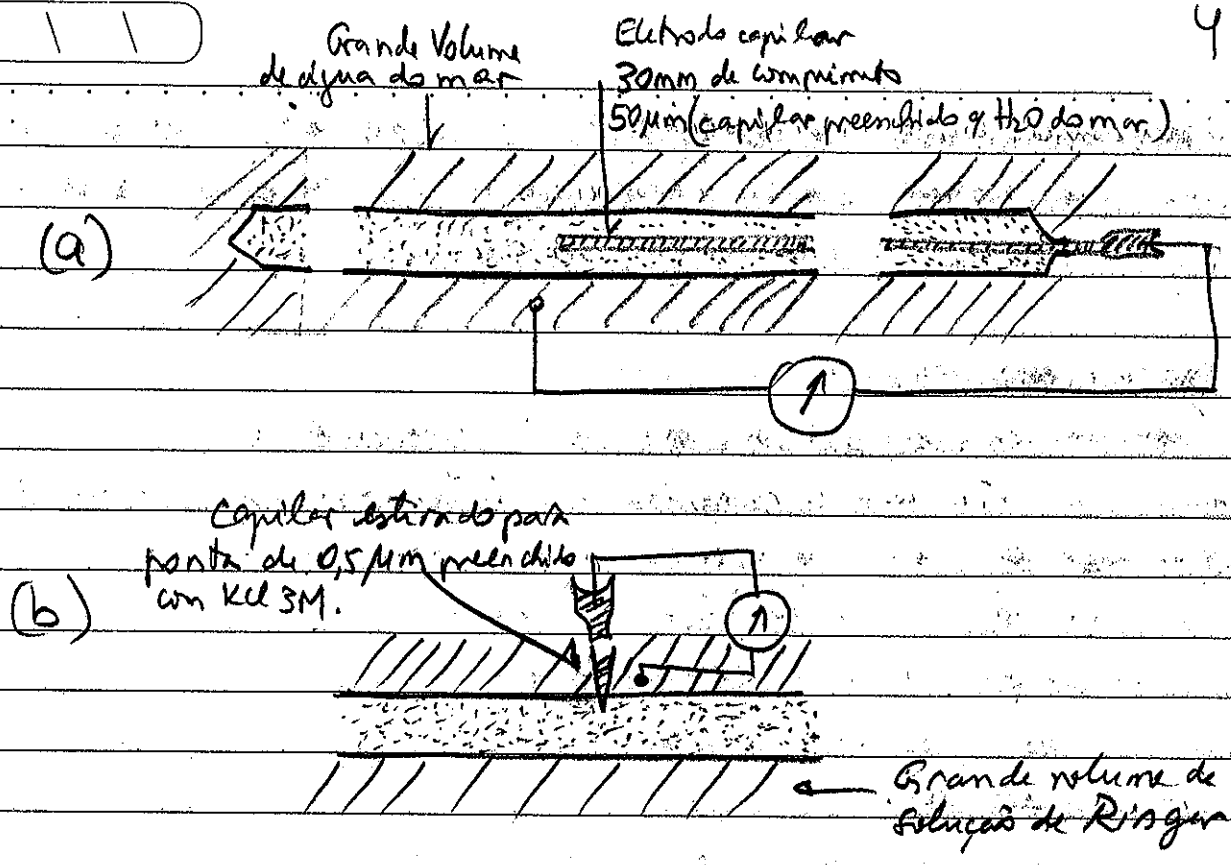 4
Grande Volume
de água do mar
Eletrodo capilar
30mm de comprimento
50µm (capilar preenchido c/ H2O do mar)
(a)
Capilar estirado para
ponta de 0,5 µm preenchido
com KCl 3M.
(b)
Grande volume de
solução de Ringer